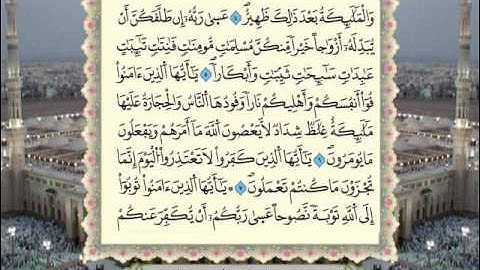 وَالْمَلَٰٓئِكَةُ بَعْدَ ذَٰلِكَ ظَهِيرٌ ٤ عَسَىٰ رَبُّهُۥٓ إِن طَلَّقَكُنَّ أَنْ
يُبَدِّلَهُۥٓ أَزْوَٰجاً خَيْراً مِّنكُنَّ مُسْلِمَٰتٍ مُّؤْمِنَٰتٍ قَٰنِتَٰتٍ تَٰٓئِبَٰتٍ
عَٰبِدَٰتٍ سَٰٓئِحَٰتٍ ثَيِّبَٰتٍ وَأَبْكَاراً ٥ يَٰٓأَيُّهَا ٱلذِينَ ءَامَنُوا۟
قُوٓا۟ أَنفُسَكُمْ وَأَهْلِيكُمْ نَاراً وَقُودُهَا ٱلنَّاسُ وَٱلْحِجَارَةُ عَلَيْهَا
مَلَٰٓئِكَةٌ غِلَاظٌ شِدَادٌ لَّا يَعْصُونَ ٱللَّهَ مَآ أَمَرَهُمْ وَيَفْعَلُونَ
مَا يُومَرُونَ ٦ يَٰٓأَيُّهَا ٱلذِينَ كَفَرُوا۟ لَا تَعْتَذِرُوا۟ ٱلْيَوْمَ إِنَّمَا
تُجْزَوْنَ مَا كُنتُمْ تَعْمَلُونَ ٧ يَٰٓأَيُّهَا ٱلذِينَ ءَامَنُوا۟ تُوبُوٓا۟
إِلَى ٱللَّهِ تَوْبَةً نَّصُوحاً عَسَىٰ رَبُّكُمُۥٓ أَنْ يُّكَفِّرَ عَنكُمْ